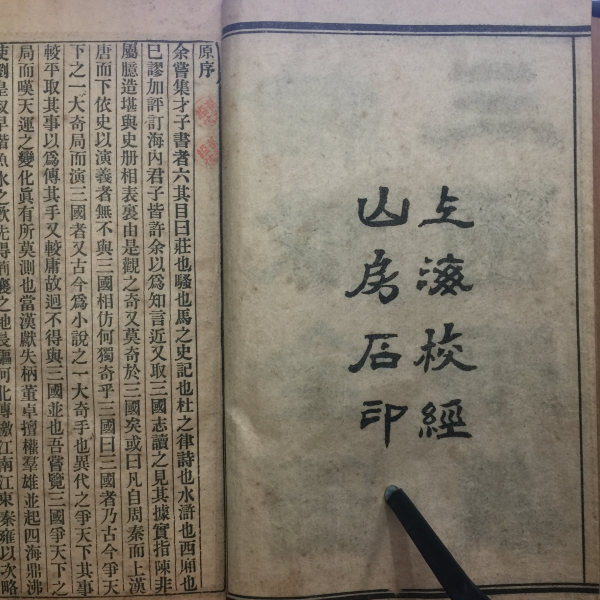 上海校經
山房石印
原序
余嘗集才子書者六其目曰莊也騷也馬之史記也杜之律詩也水滸也西廂也
已謬加評訂海內君子皆許余以爲知言近又取三國志讀之見其據實指陳非
屬臆造堪與史册相表裏由是觀之奇又莫奇於三國矣或曰凡自周秦而上漢
唐而下依史以演義者無不與三國相仿何獨奇乎三國曰三國者乃古今爭天
下之一大奇局而演三國者又古今爲小說之一大奇手也異代之爭天下其事
較平取其事以爲傳其手又較庸故迥不得與三國並也吾嘗覽三國爭天下之
局而嘆天運之變化眞有所莫測也當漢獻失柄董卓擅權羣雄並起四海鼎沸
使劉皇叔早諧魚水之歡先得荊襄之地長驅河北傳檄江南江東秦雍以次略